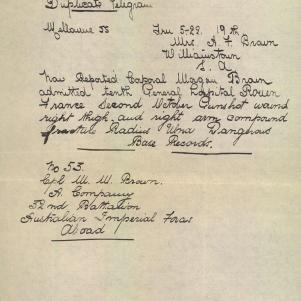 Duplicate Telegram
Melbourne 55
Mrs. A F Brown
Williamstown
S. A
Now Reported Corporal Brown
admitted tenth General Hospital Rouen
France second October Gunshot wound
right thigh and right arm compound
fracture Radius Ulna Dangerous
Base Records.
No 53.
Cpl W. W. Brown.
A. Company
32nd Battalion
Australian Imperial Force
Abroad